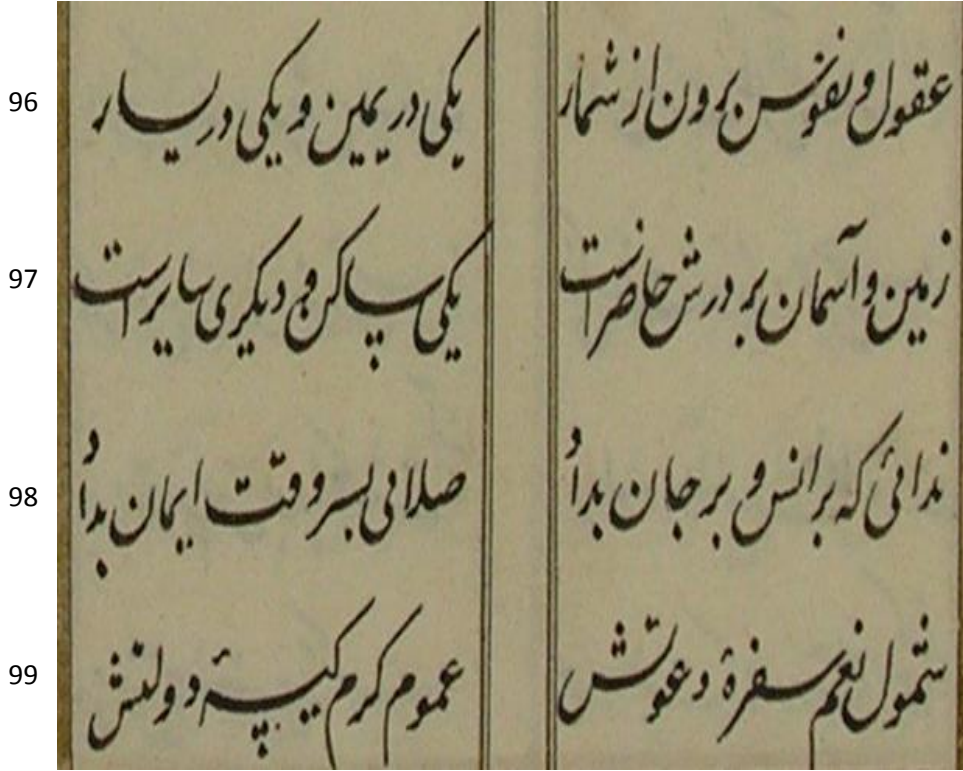 96 عقول و نفوس برون از شمار یکی در یمین و یکی در یسار
97 زمین و آسمان بر درش حاضر است یکی ساکن و دیگری سایر است
98 ندائی که بر انس و بر جان بداد صلائی بسر وقت ایمان بداد
99 شمول نعم سفرهٔ دعوتش عموم کرم کیسهٔ دولتش